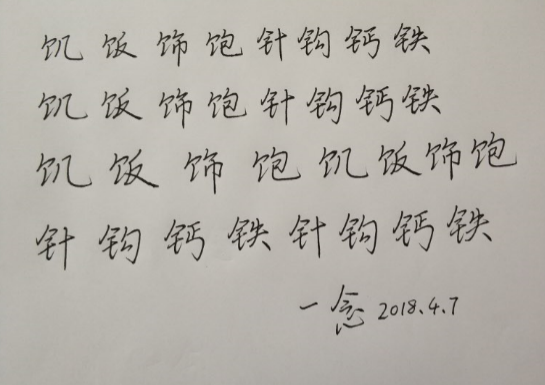 饥饭饰饱针钩钙铁
饥饭饰饱针钩钙铁
饥饭饰饱饥饭饰饱
针钩钙铁针钩钙铁
一念 2018.4.7